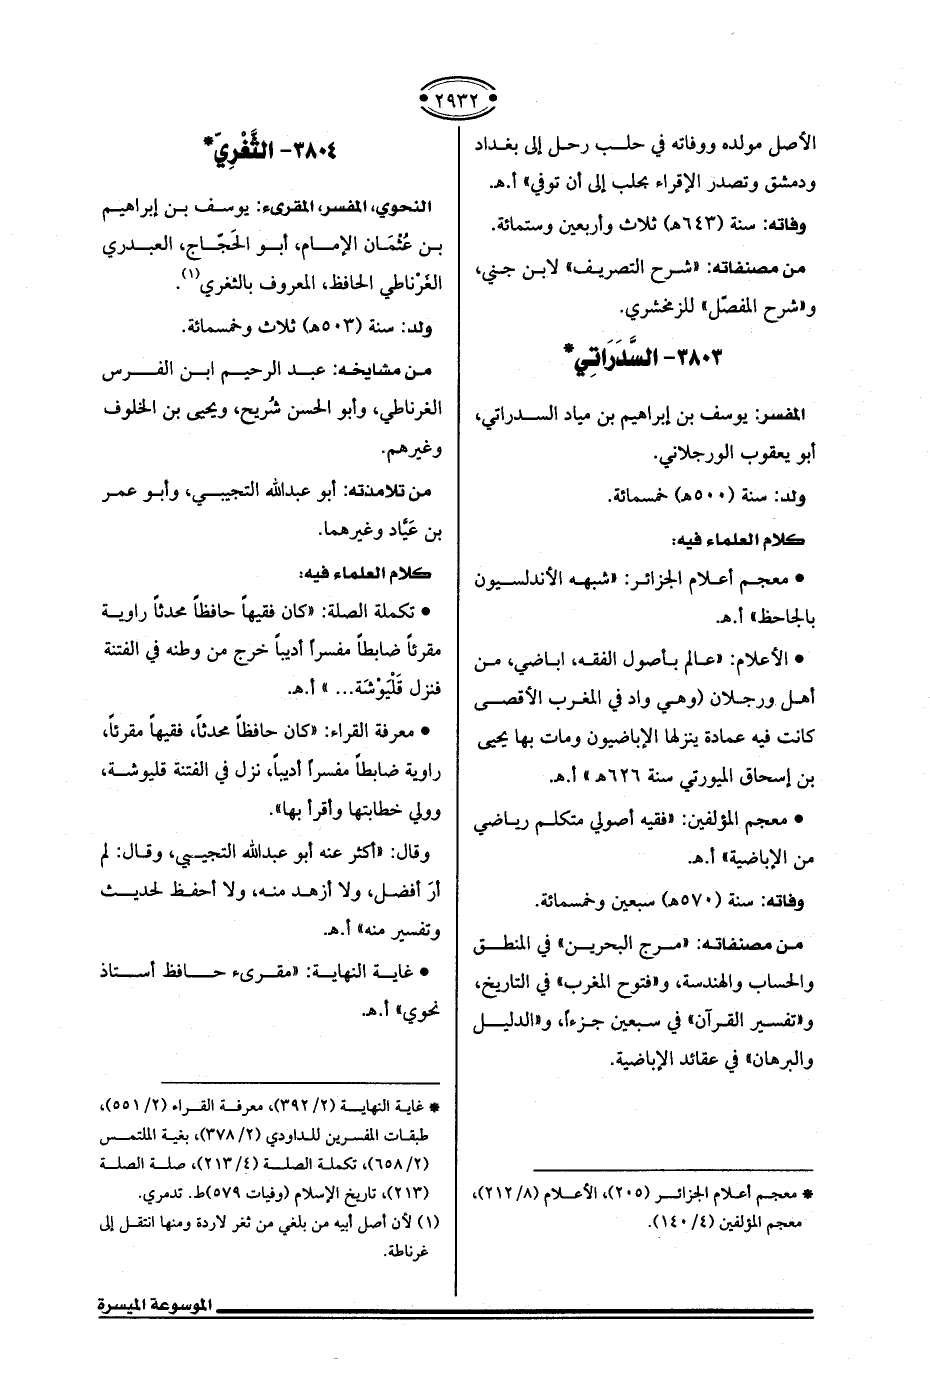 ٢٩٣٢
الأصل مولده ووفاته في حلب رحل إلى بغداد
ودمشق وتصدر الإقراء بحلب إلى أن توفي» أ.هـ.
وفاته: سنة (٦٤٣هـ) ثلاث وأربعين وستمائة.
من مصنفاته: «شرح التصريف» لابن جني،
و«شرح المفصّل» للزمخشري.
٣٨٠٣- السَّدَرَاتِي*
المفسر: يوسف بن إبراهيم بن مياد السدراتي،
أبو يعقوب الورجلاني.
ولد: سنة (٥٠٠هـ) خمسمائة.
كلام العلماء فيه:
• معجم أعلام الجزائر: «شبهه الأندلسيون
بالجاحظ» أ.هـ.
• الأعلام: «عالم بأصول الفقه، اباضي، من
أهل ورجلان (وهي واد في المغرب الأقصى
كانت فيه عمادة ينزلها الإباضيون ومات بها يحيى
بن إسحاق الميورتي سنة ٦٢٦هـ» أ.هـ.
• معجم المؤلفين: «فقيه أصولي متكلم رياضي
من الإباضية» أ.هـ.
وفاته: سنة (٥٧٠هـ) سبعين وخمسمائة.
من مصنفاته: «مرج البحرين» في المنطق
والحساب والهندسة، و«فتوح المغرب» في التاريخ،
و«تفسير القرآن» في سبعين جزءاً، و«الدليل
والبرهان» في عقائد الإباضية.
* معجم أعلام الجزائر (٢٠٥)، الأعلام (٢١٢/٨)،
معجم المؤلفين (١٤٠/٤).
٣٨٠٤- الثَّغْرِيّ*
النحوي، المفسر، المقرىء: يوسف بن إبراهيم
بن عُثْمَان الإمام، أبو الحَجَّاج، العبدري
الغَرْناطي الحافظ، المعروف بالثغري(١).
ولد: سنة (٥٠٣هـ) ثلاث وخمسمائة.
من مشايخه: عبد الرحيم ابن الفرس
الغرناطي، وأبو الحسن شُريح، ويحيى بن الخلوف
وغيرهم.
من تلامذته: أبو عبدالله التجيبي، وأبو عمر
بن عَيَّاد وغيرهما.
كلام العلماء فيه:
• تكملة الصلة: «كان فقيهاً حافظاً محدثاً راوية
مقرئاً ضابطاً مفسراً أديباً خرج من وطنه في الفتنة
فنزل قَلْيَوْشَة... » أ.هـ.
• معرفة القراء: «كان حافظاً محدثاً، فقيهاً مقرئاً،
راوية ضابطاً مفسراً أديباً، نزل في الفتنة قليوشة،
وولي خطابتها وأقرأ بها».
وقال: «أكثر عنه أبو عبدالله التجيبي، وقال: لم
أرَ أفضل، ولا أزهد منه، ولا أحفظ لحديث
وتفسير منه» أ.هـ.
• غاية النهاية: «مقرىء حافظ أستاذ
نحوي» أ.هـ.
* غاية النهاية (٣٩٢/٢)، معرفة القراء (٥٥١/٢)،
طبقات المفسرين للداودي (٣٧٨/٢)، بغية الملتمس
(٦٥٨/٢)، تكملة الصلة (٢١٣/٤)، صلة الصلة
(٢١٣)، تاريخ الإسلام (وفيات ٥٧٩)ط. تدمري.
(١) لأن أصل أبيه من بلغي من ثغر لاردة ومنها انتقل إلى
غرناطة.
الموسوعة الميسرة